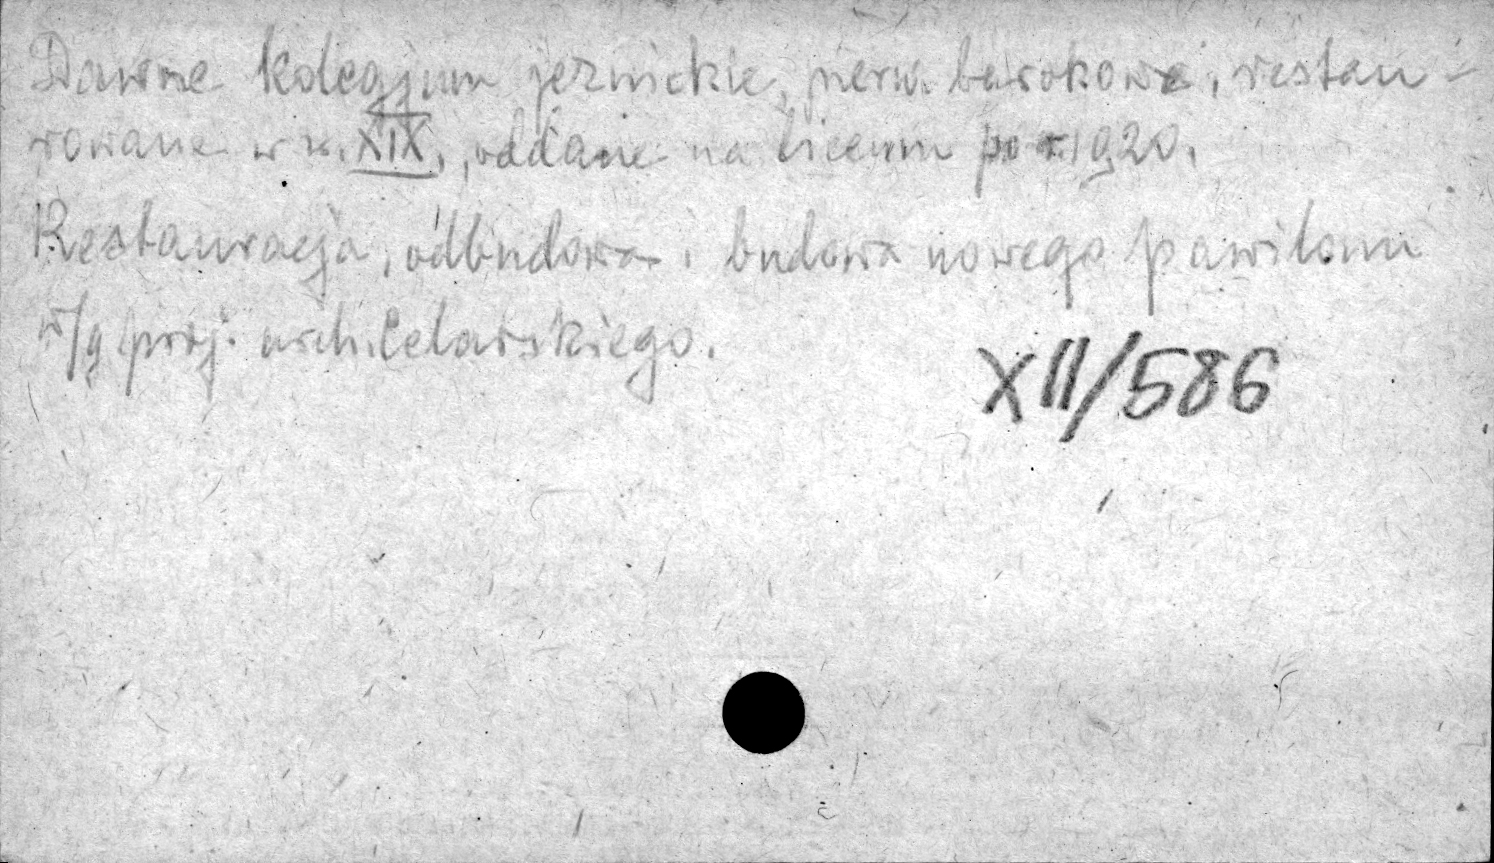 Dawne kolegjum jezuickie, pierw. barokowe, restau-
rowane w w. XIX, oddane na liceum po r. 1920.
Restauracja, odbudowa i budowa nowego pawilonu
w/g proj. arch.
XII/586